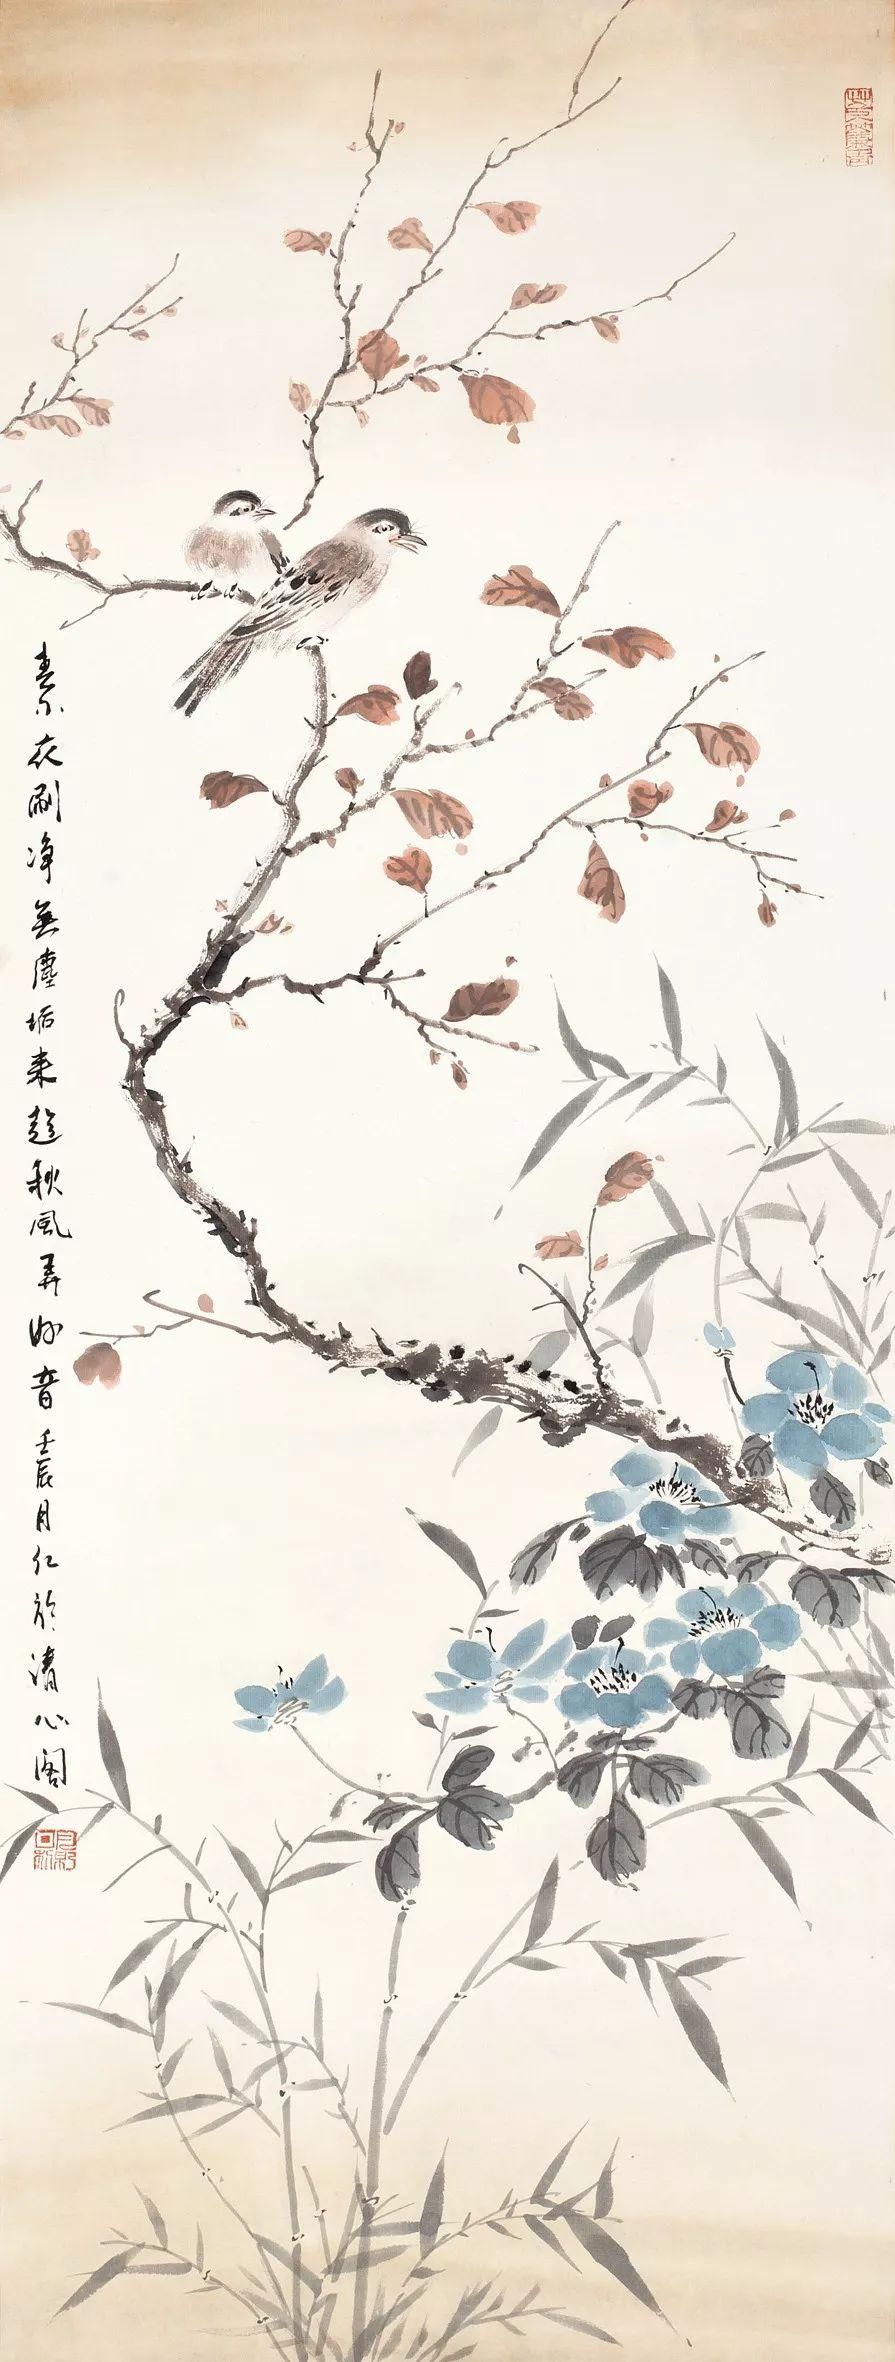 素衣刷净無塵垢来趁秋風弄妙音壬辰月仁於清心阁